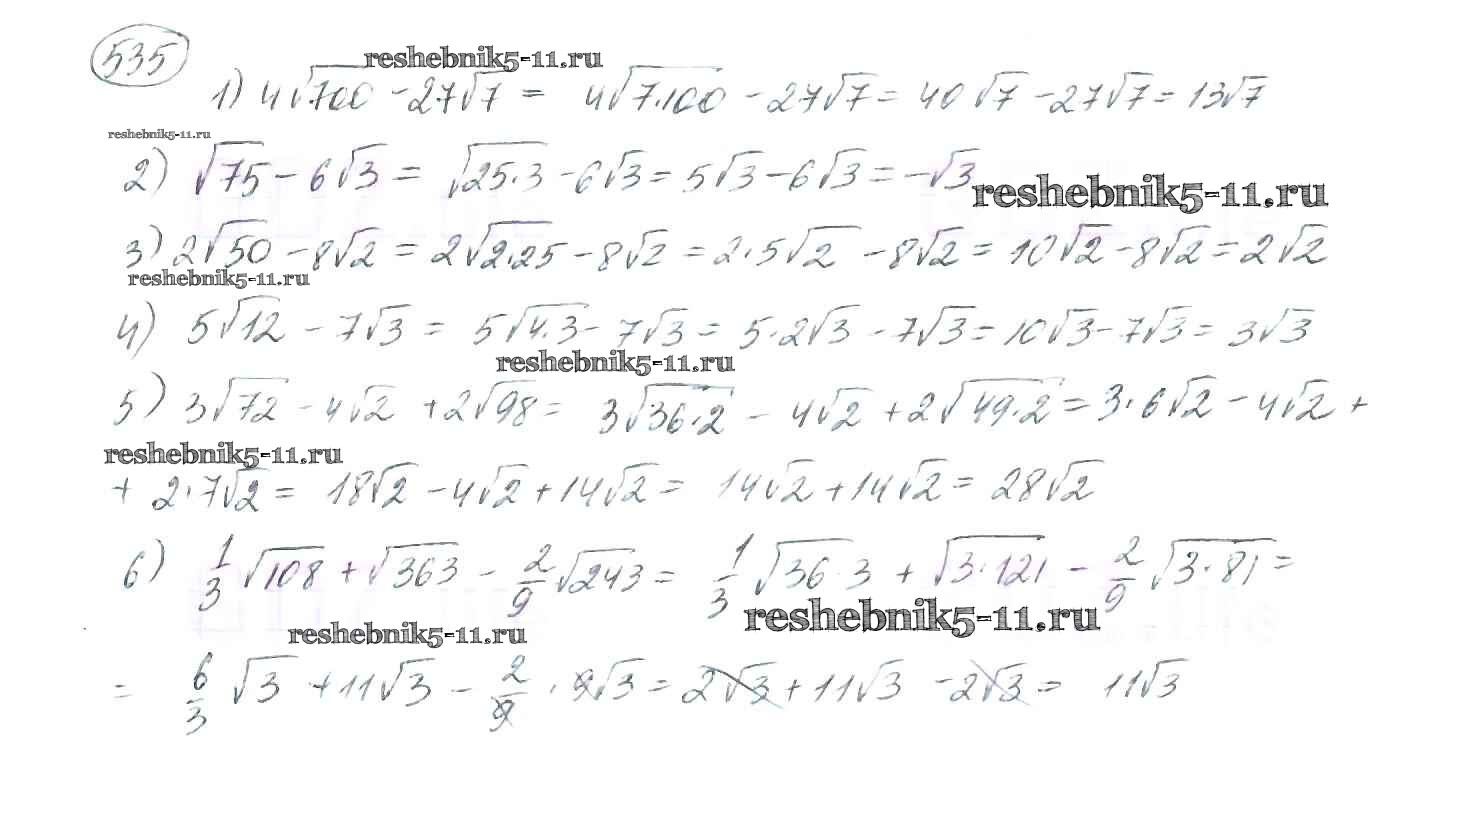 535
reshebnik5-11.ru
1) 4√700 - 27√7 = 4√7·100 - 27√7 = 40√7 - 27√7 = 13√7
reshebnik5-11.ru
2) √75 - 6√3 = √25·3 - 6√3 = 5√3 - 6√3 = -√3
reshebnik5-11.ru
3) 2√50 - 8√2 = 2√2·25 - 8√2 = 2·5√2 - 8√2 = 10√2 - 8√2 = 2√2
reshebnik5-11.ru
4) 5√12 - 7√3 = 5√4·3 - 7√3 = 5·2√3 - 7√3 = 10√3 - 7√3 = 3√3
reshebnik5-11.ru
5) 3√72 - 4√2 + 2√98 = 3√36·2 - 4√2 + 2√49·2 = 3·6√2 - 4√2 +
reshebnik5-11.ru
+ 2·7√2 = 18√2 - 4√2 + 14√2 = 14√2 + 14√2 = 28√2
6) 1/3 √108 + √363 - 2/9 √243 = 1/3 √36·3 + √3·121 - 2/9 √3·81 =
reshebnik5-11.ru
reshebnik5-11.ru
= 6/3 √3 + 11√3 - 2/9 · 9√3 = 2√3 + 11√3 - 2√3 = 11√3